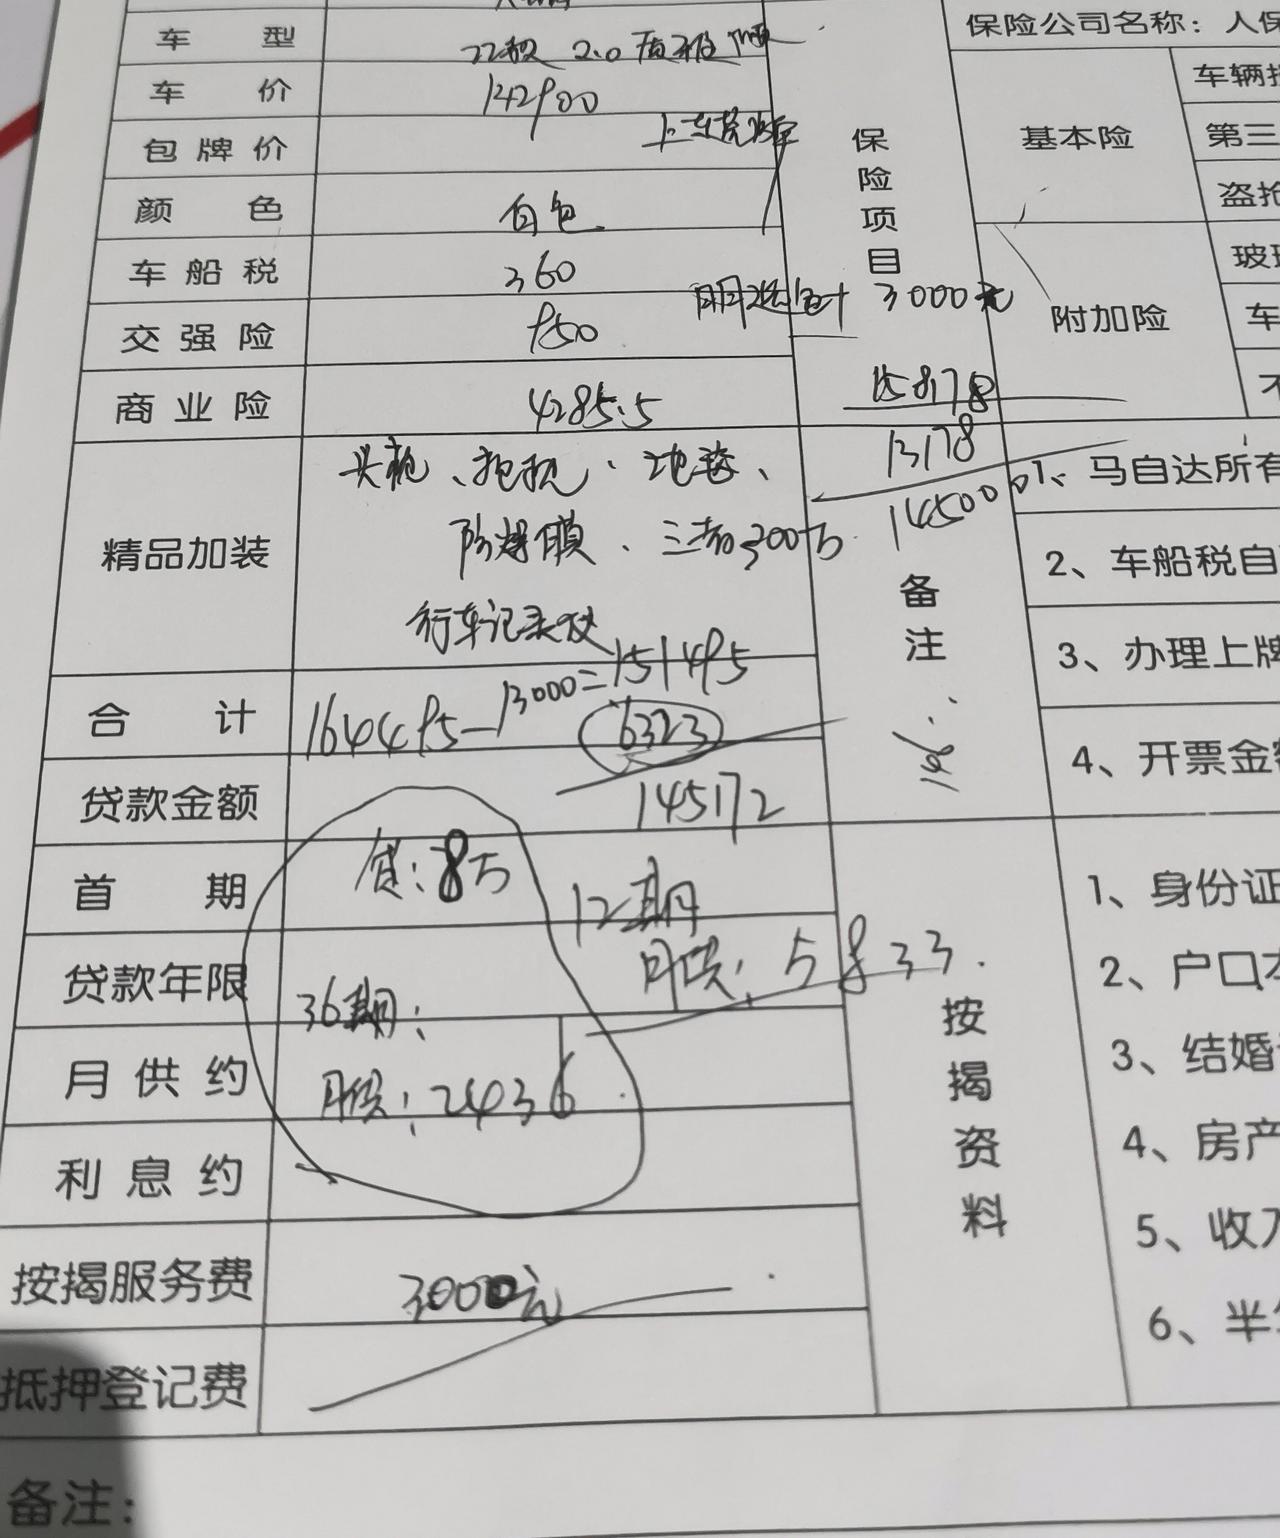 车型 22款 2.0
车价 142900
包牌价
颜色 白色
车船税 360
交强险 950
商业险 4285.5
精品加装 头枕、抱枕、地毯、
防爆膜、三者300万
行车记录仪
合计 164495-13000=151495
6323
贷款金额 145172
首期 贷:8万
12期
月供:5833.
贷款年限 36期:
月供约 月供:2436
利息约
按揭服务费 3000元
抵押登记费
备注:
保险项目
3000元
15878
13178
145000
备注
按揭资料
保险公司名称:人保
基本险
车辆
第三
盗抢
附加险
玻
车
不
1、马自达所有
2、车船税自
3、办理上牌
4、开票金
1、身份证
2、户口
3、结婚
4、房产
5、收
6、半